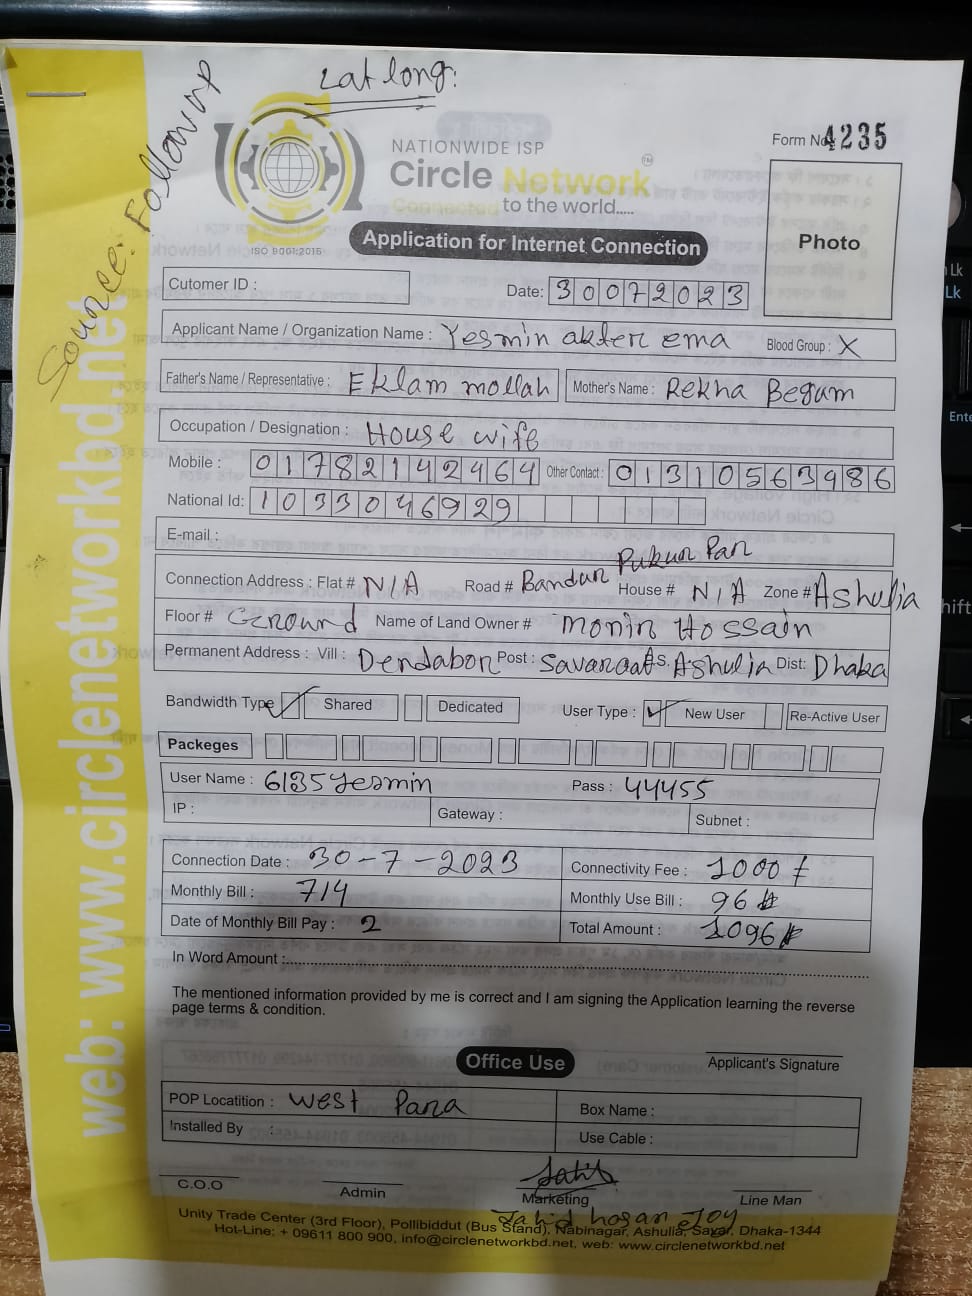 Lat long:
Source: Followup
NATIONWIDE ISP
Circle Network TM
Connected to the world.....
ISO 9001:2015
Form No. 4235
Photo
Application for Internet Connection
Cutomer ID :
Date: 30072023
Applicant Name / Organization Name : Yesmin akter ema Blood Group : X
Father's Name / Representative : Eklam mollah Mother's Name : Rekha Begum
Occupation / Designation : House wife
Mobile : 01782142464 Other Contact : 01310563986
National Id: 1033046929
E-mail :
Connection Address : Flat # N/A Road # Bandur Pukur Par House # N/A Zone # Ashulia
Floor # Ground Name of Land Owner # monin Hossain
Permanent Address : Vill : Dendabor Post : Savar P.S. Ashulia Dist: Dhaka
Bandwidth Type ✓ Shared Dedicated User Type : ✓ New User Re-Active User
Packeges
User Name : 6135yesmin Pass : 44455
IP : Gateway : Subnet :
Connection Date : 30-7-2023 Connectivity Fee : 1000 ৳
Monthly Bill : 714 Monthly Use Bill : 96 ৳
Date of Monthly Bill Pay : 2 Total Amount : 1096 ৳
In Word Amount :
The mentioned information provided by me is correct and I am signing the Application learning the reverse
page terms & condition.
Applicant's Signature
Office Use
POP Locatition : West Para Box Name :
Installed By : Use Cable :
C.O.O Admin Marketing Line Man
Jahid hosan Joy
Unity Trade Center (3rd Floor), Pollibiddut (Bus Stand), Nabinagar, Ashulia, Savar, Dhaka-1344
Hot-Line: + 09611 800 900, info@circlenetworkbd.net, web: www.circlenetworkbd.net
web: www.circlenetworkbd.net